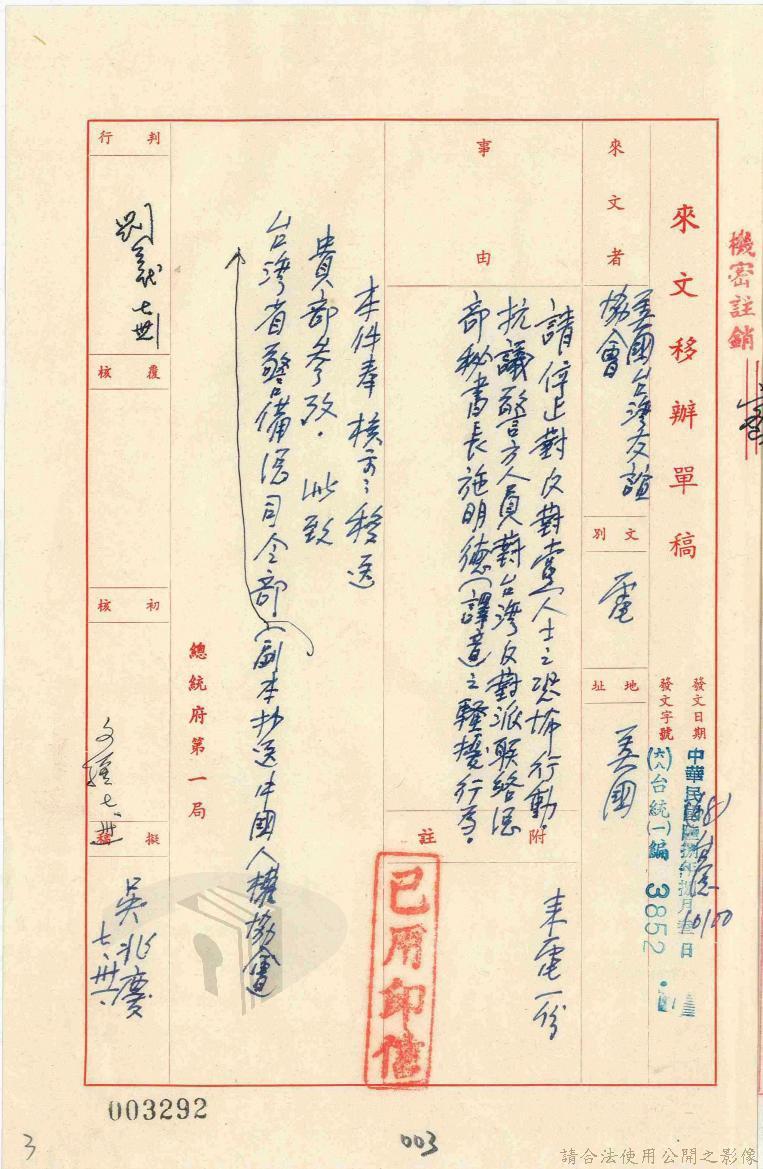 機密註銷
來文移辦單稿
發文日期
中華民國陸捌年捌月壹日
發文字號
(六八)台統(一)編 3852 號
來文者
美國台灣友誼
協會
文別
電
地址
美國
事由
請停止對反對黨人士之恐怖行動。
抗議警方人員對台灣反對派聯絡總
部秘書長施明德(譯音)之騷擾行為。
附註
來電一份
本件奉 核示:移送
貴部參考。此致
台灣省警備總司令部。(副本抄送中國人權協會)
總統府第一局
判行
覆核
初核
擬稿
吳兆慶
七、卅一
已用印信
003292
3
003
請合法使用公開之影像